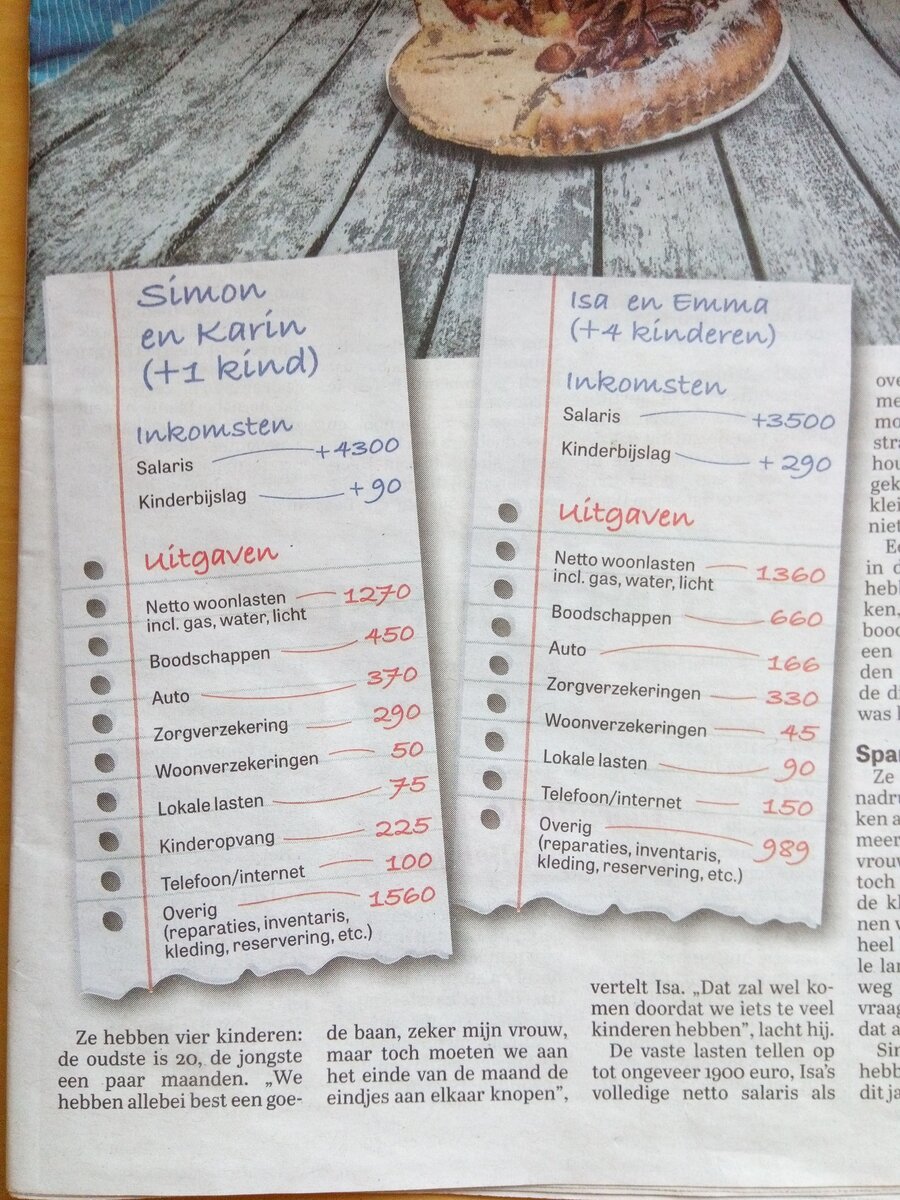 Simon
en Karin
(+1 kind)
Inkomsten
Salaris +4300
Kinderbijslag +90
Uitgaven
Netto woonlasten 1270
incl. gas, water, licht
Boodschappen 450
Auto 370
Zorgverzekering 290
Woonverzekeringen 50
Lokale lasten 75
Kinderopvang 225
Telefoon/internet 100
Overig 1560
(reparaties, inventaris,
kleding, reservering, etc.)
Isa en Emma
(+4 kinderen)
Inkomsten
Salaris +3500
Kinderbijslag +290
Uitgaven
Netto woonlasten 1360
incl. gas, water, licht
Boodschappen 660
Auto 166
Zorgverzekeringen 330
Woonverzekeringen 45
Lokale lasten 90
Telefoon/internet 150
Overig 989
(reparaties, inventaris,
kleding, reservering, etc.)
Ze hebben vier kinderen:
de oudste is 20, de jongste
een paar maanden. „We
hebben allebei best een goe-
de baan, zeker mijn vrouw,
maar toch moeten we aan
het einde van de maand de
eindjes aan elkaar knopen”,
vertelt Isa. „Dat zal wel ko-
men doordat we iets te veel
kinderen hebben”, lacht hij.
De vaste lasten tellen op
tot ongeveer 1900 euro, Isa’s
volledige netto salaris als
in d
een
den
de di
Ze
ken a
meer
toch
de kl
nen v
heel
weg
dat a